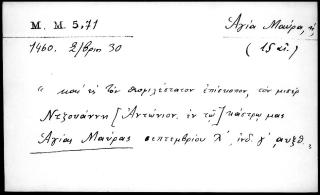 M. M. 5.71
Ἁγία Μαύρα, ἡ
1460. 2/βριο 30
(15 αἰ.)
"καὶ τὸν θεοφιλέστατον ἐπίσκοπον, τὸν μισὲρ
Ντζουάννη [Ἀντώνιον ἐν τῷ] κάστρῳ μας
Ἁγίας Μαύρας σεπτεμβρίου λ´, ἰνδ. γ´, αυξθ.